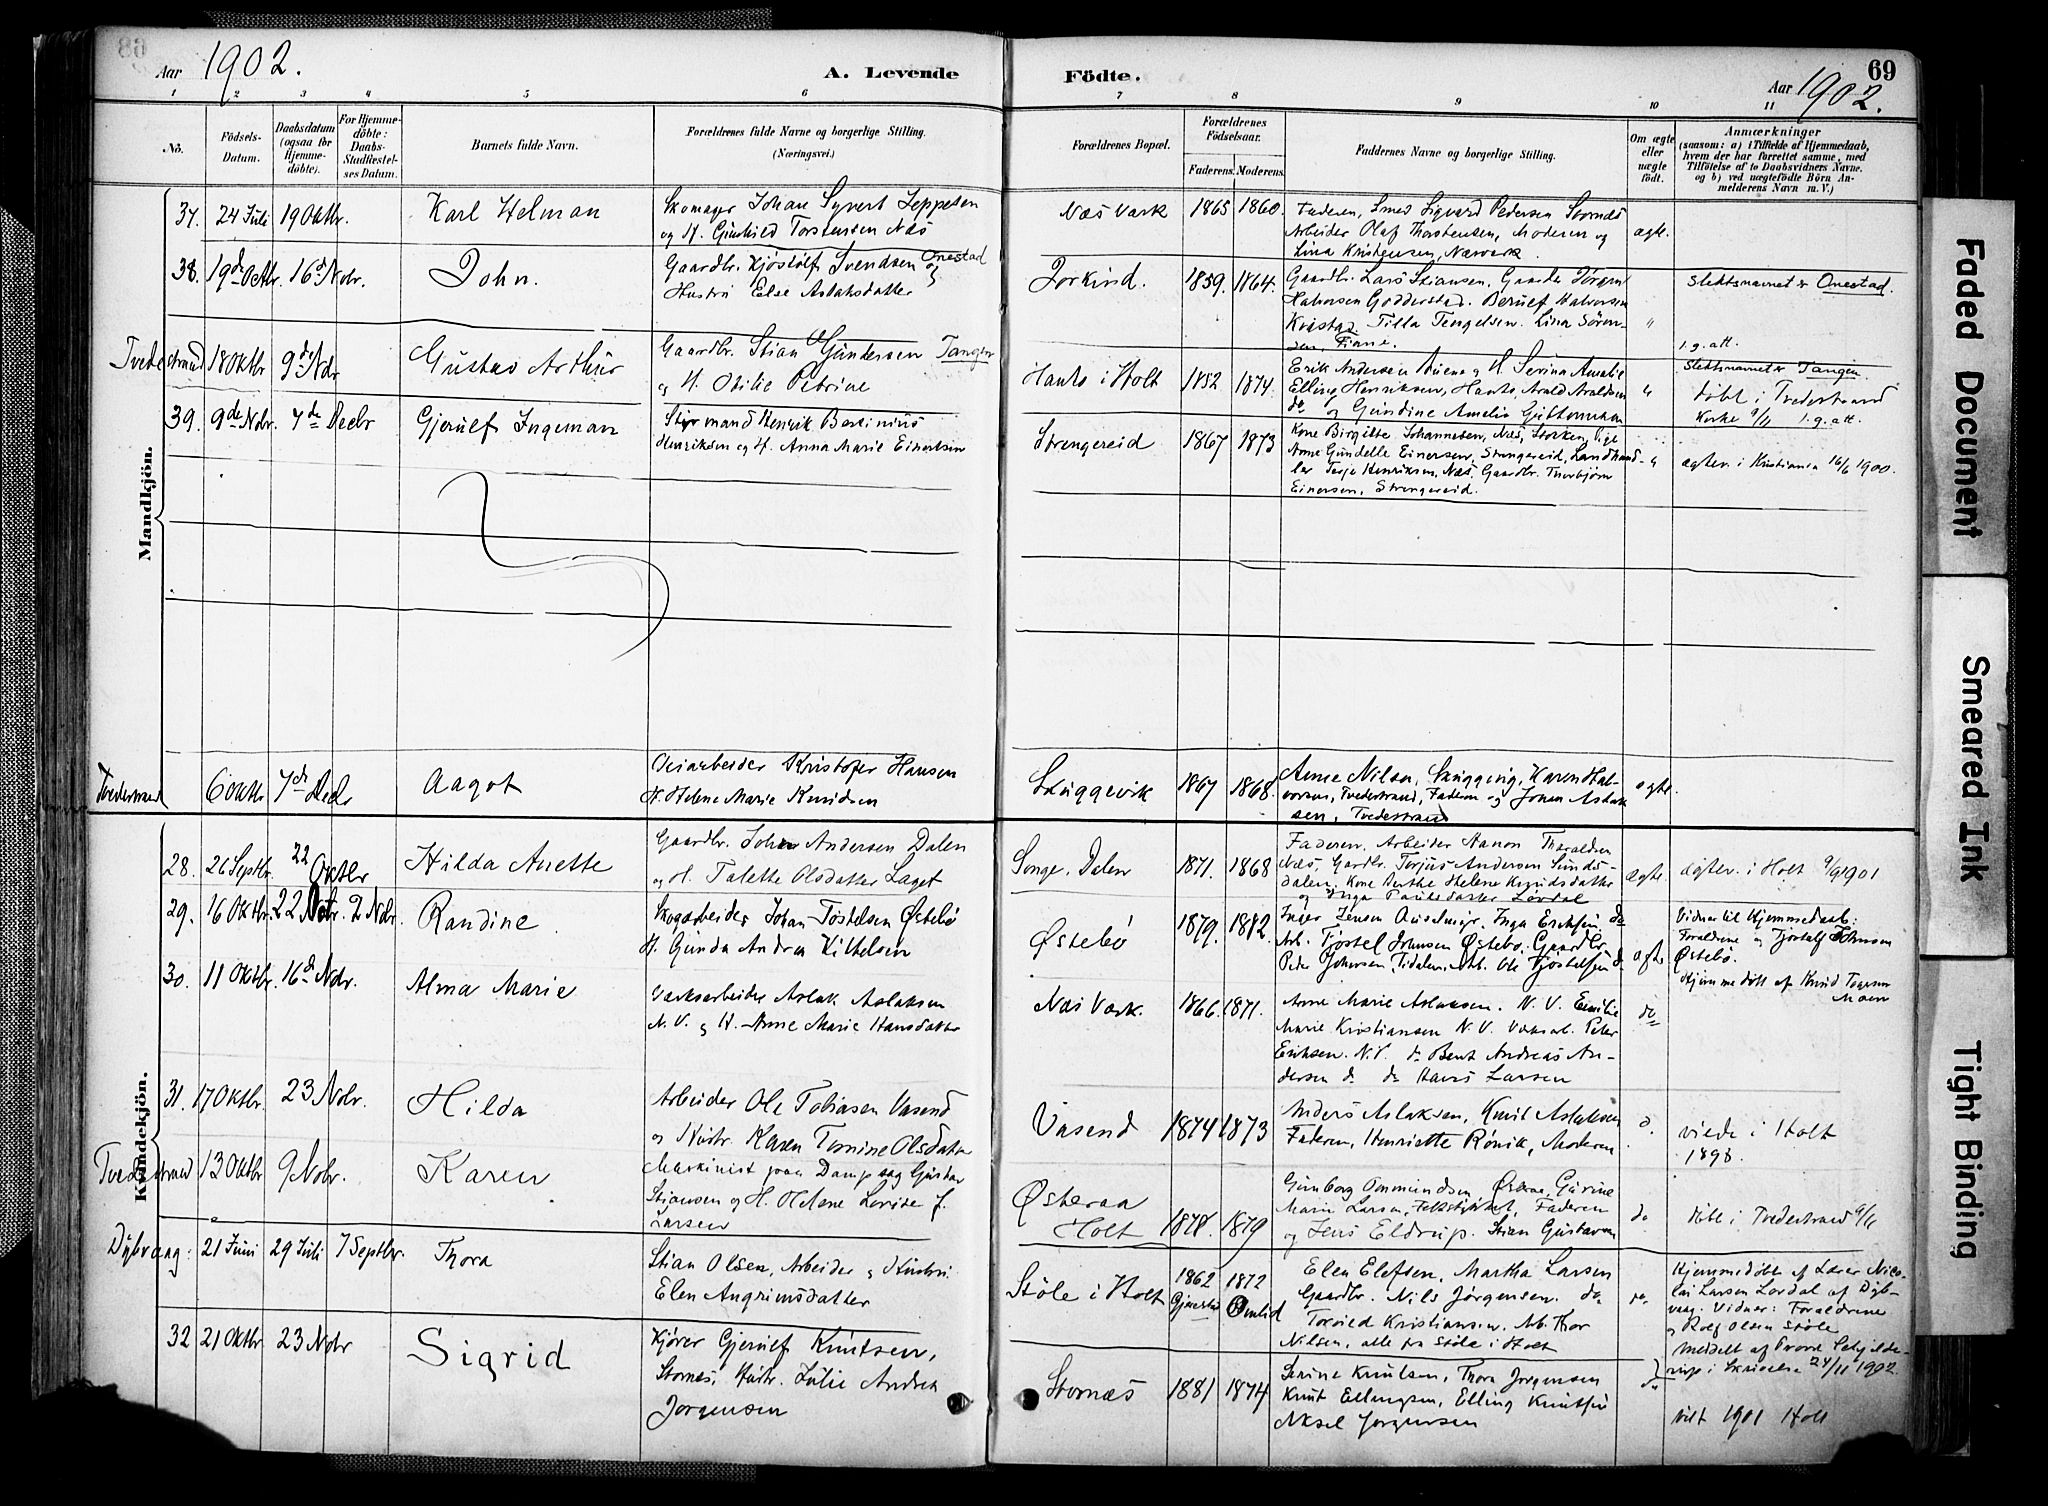 Aar 1902.
A. Levende
Födte.
69
Aar 1902.
1 2 3 4 5 6 7 8 9 10 11
No.
Födsels-
Datum.
Daabsdatum
(ogsaa for
Hjemme-
döbte).
For Hjemme-
döbte:
Daabs-
Stadfestel-
ses Datum.
Barnets fulde Navn.
Forældrenes fulde Navne og borgerlige Stilling.
(Næringsvei.)
Forældrenes Bopæl.
Forældrenes
Födselsaar.
Faderens. Moderens.
Faddernes Navne og borgerlige Stilling.
Om ægte
eller
uægte
födt.
Anmærkninger
(saasom: a) i Tilfælde af Hjemmedaab,
hvem der har forrettet samme, med
Tilföielse af to Daabsvidners Navne.
og b) ved uægtefödte Börn An-
melderens Navn m. V.)
Mandkjön.
37. 24 Juli 19 Oktbr. Karl Helman
Skomager Johan Syvert Jeppesen
og H. Gunhild Torstensen Næs
Næs Værk 1865 1860.
Faderen, Smed Sigvard Pedersen Stornæs
Arbeider Olaf Thorstensen, Moderen og
Lina Kristensen, Næsværk.
ægte.
38. 19de Octbr. 16d Novbr. John.
Gaardbr. Kjöstolf Svendsen Onestad og
Hustru Else Aslaksdatter
Jorkind. 1859. 1864.
Gaardbr. Lars Stiansen, Gaardbr Jörgen
Halvorsen Godderstad. Berulf Halvorsen
Kvistad. Tilla Tengelsen. Lina Sören-
sen, Fiane.
"
Slektsnavnet er Onestad.
1. g. att.
Tvedestrand 18 Oktbr 9de Nvbr Gustav Arthur
Gaardbr. Stian Gundersen Tangen
og H. Otilie Petrine
Hantho i Holt 1852. 1874.
Erik Andersen og H Serina Amalie
Elling Henriksen, Hantho, Arald Araldsen
do og Gundine Amelia Guttormsen
"
Slektsnavnet er Tangen.
döbt i Tvedestrand
Kirke 9/11 1. g. att.
39. 9de Novbr. 7de Decbr Gjerulf Ingeman
Styrmand Henrik Bertinius
Henriksen og H. Anna Marie Einersen
Strengereid 1867 1873
Kone Birgitte Johannesen, Næs, Storken, Pige
Anne Gundelle Einersen, Strengereid, Landhand-
ler Terje Henriksen, Næs. Gaardbr. Thorbjörn
Einersen, Strengereid.
"
ægtev. i Kristiania 16/6 1900.
Tvedestrand 6 Oktbr 7de Decbr Aagot
Veiarbeider Kristofer Hansen
H. Helene Marie Knudsen
Skuggevik 1867 1868.
Anne Nilsen, Skuggevig, Karen Hal-
vorsen, Tvedestrand, Faderen og Johan Aslak
sen, Tvedestrand
ægte.
Kvindekjön.
28. 26 Septbr. 22 Oktbr Hilda Anette
Gaardbr. John Andersen Dalen
og H. Talette Olsdatter Laget
Songe, Dalen 1871. 1868
Faderen. Arbeider Hanon Tharaldsen
Næs, Gardbr. Torjus Andersen Sunds-
dalen. Kone Berthe Helene Knudsdatter
og Inga Poulsdatter Lövdal
ægte.
ægtev. i Holt 9/9 1901
29. 16 Oktbr. 22 Octr. 2 Novbr. Randine
Skogarbeider Johan Tostelsen Östebö
H. Gunda Andrea Kittelsen
Östebö 1879. 1882.
Inger Jensen Auselmyr, Inga Eriksen do
Arb. Tjöstel Johnsen Östebö. Gaardbr
Peder Johnsen, Tidalen. Arb. Ole Tjöstelsen do
ægte.
Vidner til Hjemmedaab:
Forældrene og Tjöstolf Johnsen
Östebö.
Hjemmedöbt af Knud Toresen
Moen
30. 11 Oktbr. 16d Novbr. Alma Marie
Værksarbeider Aslak Aslaksen
N. V. og H. Anne Marie Hansdatter
Næs Værk. 1866. 1871.
Anne Marie Aslaksen. N. V. Emilie
Marie Kristiansen N. V. Værksarb. Peter
Eriksen. N. V. do Bent Andreas An-
dersen do do Hans Larsen
do
31. 17 Oktbr. 23 Novbr. Hilda
Arbeider Ole Tobiasen Vasend
og Hustr. Karen Tomine Olsdatter
Vasend 1874 1873
Anders Aslaksen, Knut Aslaksen
Faderen, Henriette Rönik, Moderen
d.
viede i Holt
1898.
Tvedestrand 13 Oktbr 9 Novbr. Karen
Maskinist paa Dampsag Gustav
Stiansen og H. Helene Lovise f.
Larsen
Österaa
Holt 1878. 1879
Gunborg Ommundsen Österaa, Gurine
Marie Larsen, Faderen
og Jens Eldrup. Stian Gustavsen
do
döbt i Tvedestrand 9/11
Dybvaag: 21 Juni 29 Juli 7 Septbr. Thora
Stian Olsen, Arbeider og Hustru
Elen Angrimsdatter
Stöle i Holt 1862 1872
Gjerestad Omlid
Elen Elefsen, Martha Larsen
Gaardbr. Nils Jörgensen. do
Torvild Kristiansen. Arb. Thor
Nilsen, alle fra Stöle i Holt
Hjemmedöbt af Lærer Nico-
lai Larsen Lövdal af Dyb-
vaag. Vidner: Forældrene
og Rolf Olsen Stöle
meddelt af Provst Schjelde-
rup i Skrivelse 24/11 1902.
32 21 Oktbr 23 Novbr Sigrid
Kjörer Gjerulf Knutsen,
Stornæs. Hustr. Julie Andrea
Jorgensen
Stornæs 1881 1874
Serine Knutsen, Thora Jorgensen
Knut Ellingsen, Elling Knutsen
Aksel Jorgensen
do
viet 1901 Holt
Faded Document
Smeared Ink
Tight Binding